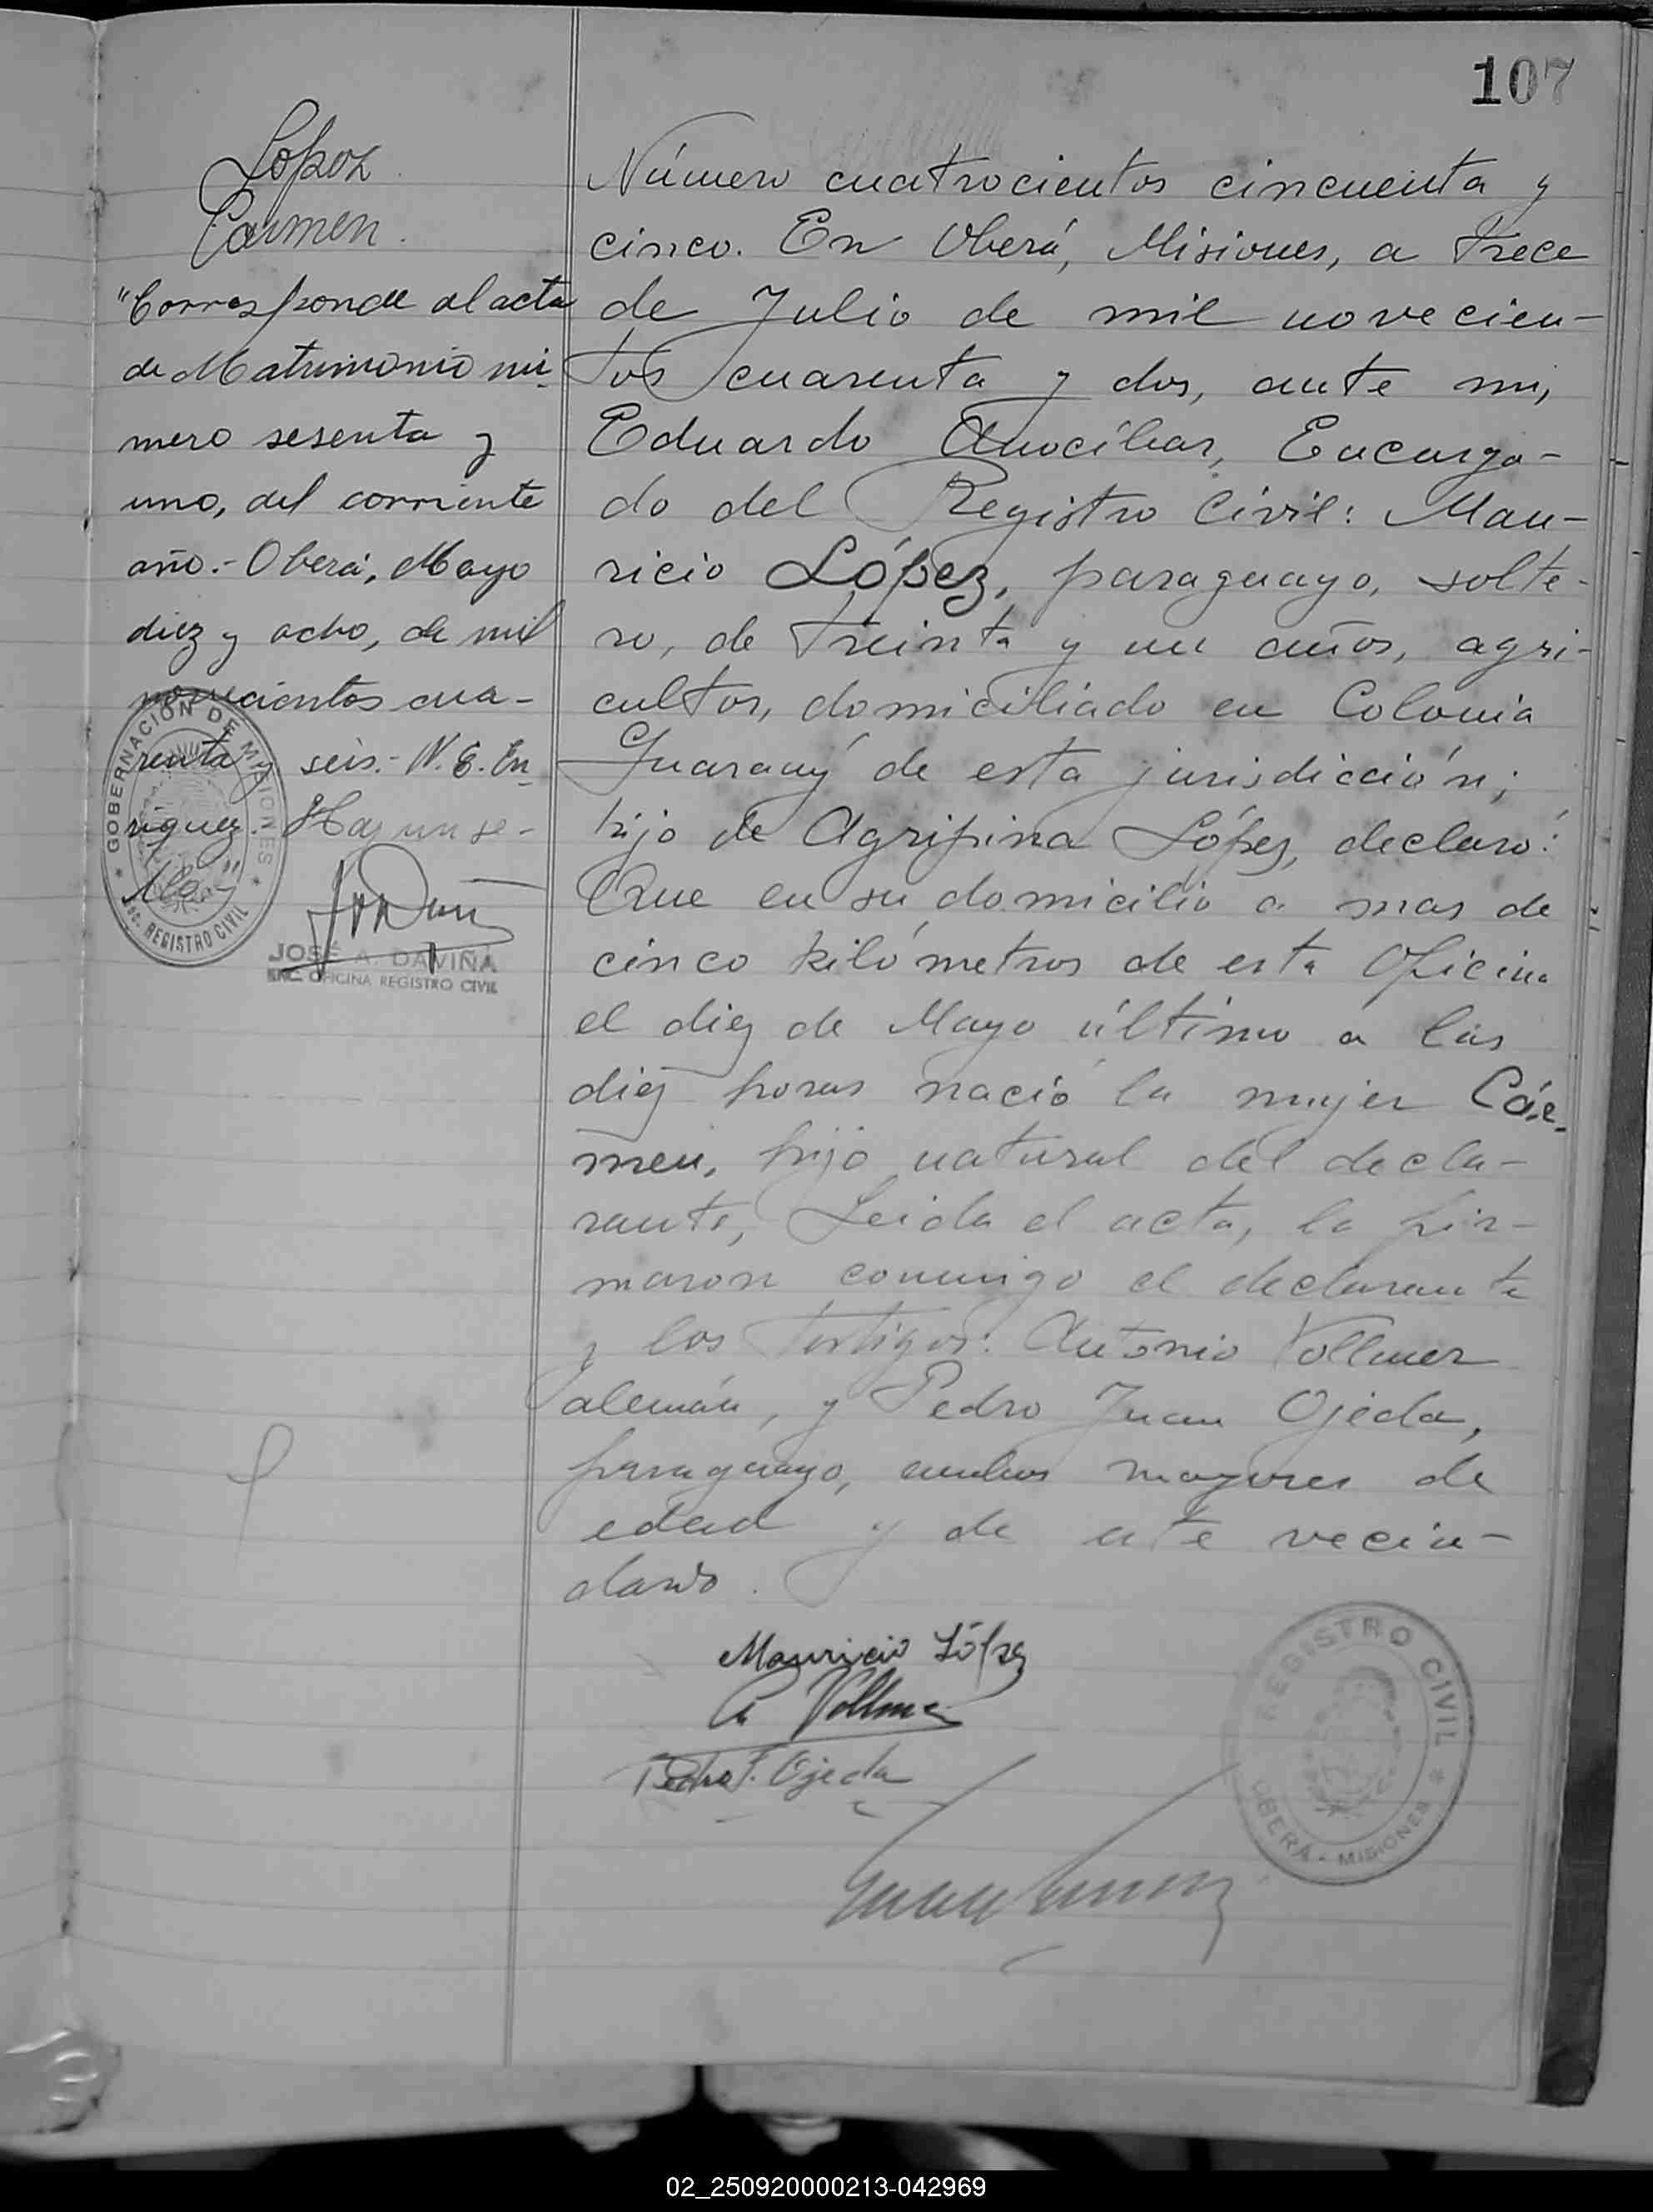 107
Lopez
Carmen.
"Corresponde al acta
de Matrimonio nú-
mero sesenta y
uno, del corriente
año.- Oberá, Mayo
diez y ocho, de mil
novecientos cua-
renta y seis.- N. E. En-
riquez. Hay un se-
llo"
GOBERNACIÓN DE MISIONES
REGISTRO CIVIL
JOSÉ A. DAVIÑA
ENC. OFICINA REGISTRO CIVIL
Número cuatrocientos cincuenta y
cinco. En Oberá, Misiones, a trece
de Julio de mil novecien-
tos cuarenta y dos, ante mi,
Eduardo Anocíbar, Encarga-
do del Registro Civil: Mau-
ricio López, paraguayo, solte-
ro, de treinta y un años, agri-
cultor, domiciliado en Colonia
Guaraný de esta jurisdicción;
hijo de Agripina López, declaró:
Que en su domicilio a mas de
cinco kilómetros de esta Oficina
el diez de Mayo último a las
diez horas nació la mujer Cár-
men, hijo natural del decla-
rante, Leida el acta, la fir-
maron conmigo el declarante
y los testigos: Antonio Vollmer
alemán, y Pedro Juan Ojeda,
paraguayo, ambos mayores de
edad y de este vecin-
dario.
Mauricio López
A. Vollmer
Pedro J. Ojeda
REGISTRO CIVIL
OBERÁ - MISIONES
02_250920000213-042969